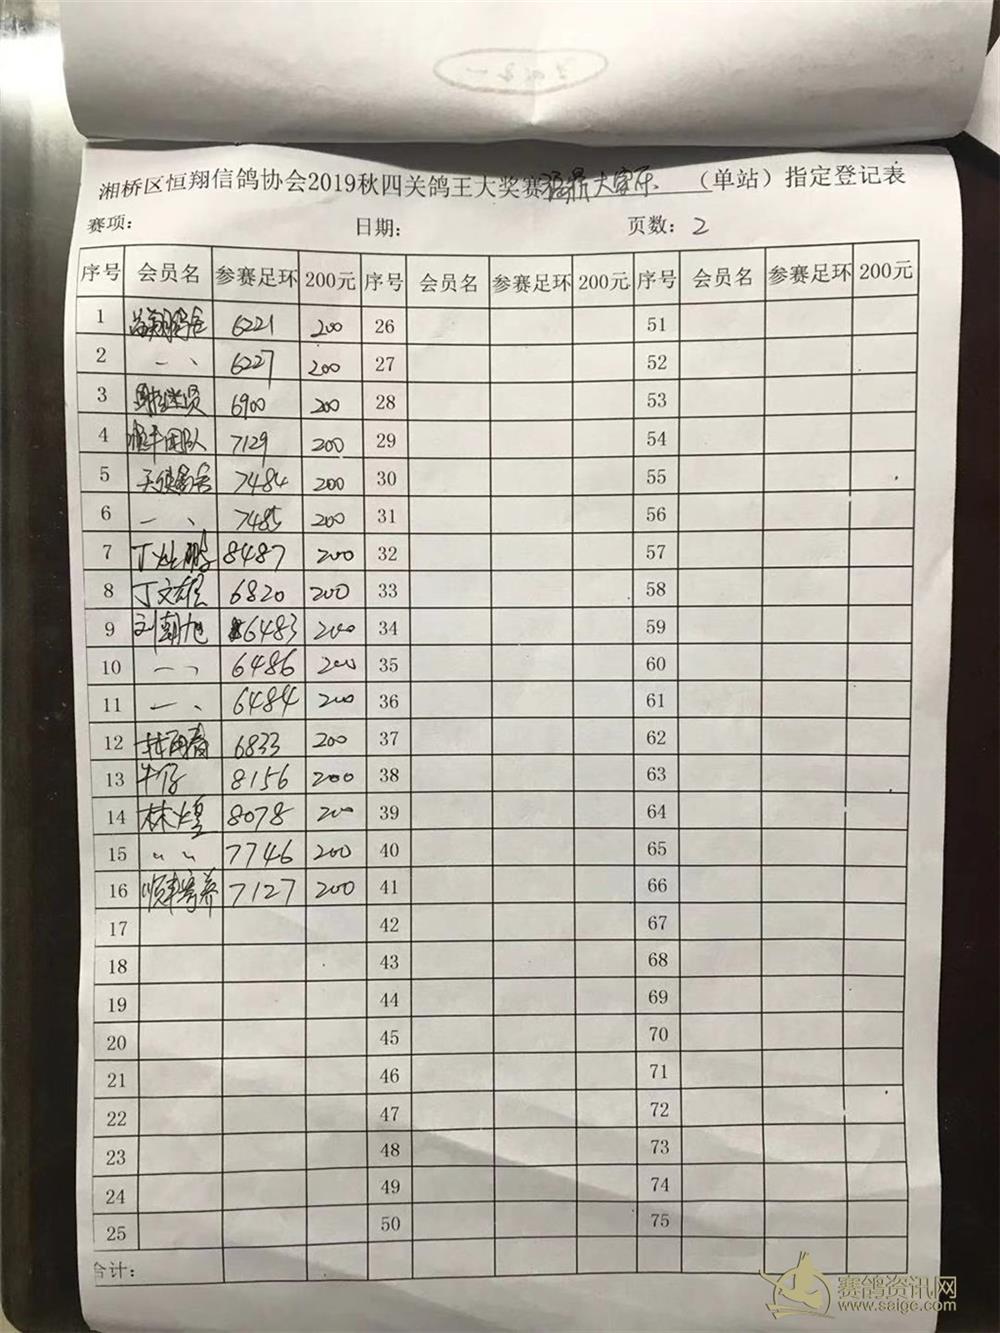 湘桥区恒翔信鸽协会2019秋四关鸽王大奖赛 大家乐 （单站）指定登记表
赛项： 日期： 页数：2
序号 会员名 参赛足环 200元 序号 会员名 参赛足环 200元 序号 会员名 参赛足环 200元
1 6221 200 26 51
2 一 、 6227 200 27 52
3 6900 200 28 53
4 团队 7129 200 29 54
5 7484 200 30 55
6 一 、 7485 200 31 56
7 丁 鹏 8487 200 32 57
8 丁文雄 6820 200 33 58
9 刘朝旭 6483 200 34 59
10 一 、 6486 200 35 60
11 一 、 6484 200 36 61
12 6833 200 37 62
13 牛仔 8156 200 38 63
14 林煌 8078 200 39 64
15 〃 〃 7746 200 40 65
16 顺丰寄养 7127 200 41 66
17 42 67
18 43 68
19 44 69
20 45 70
21 46 71
22 47 72
23 48 73
24 49 74
25 50 75
合计：
赛鸽资讯网
www.saige.com